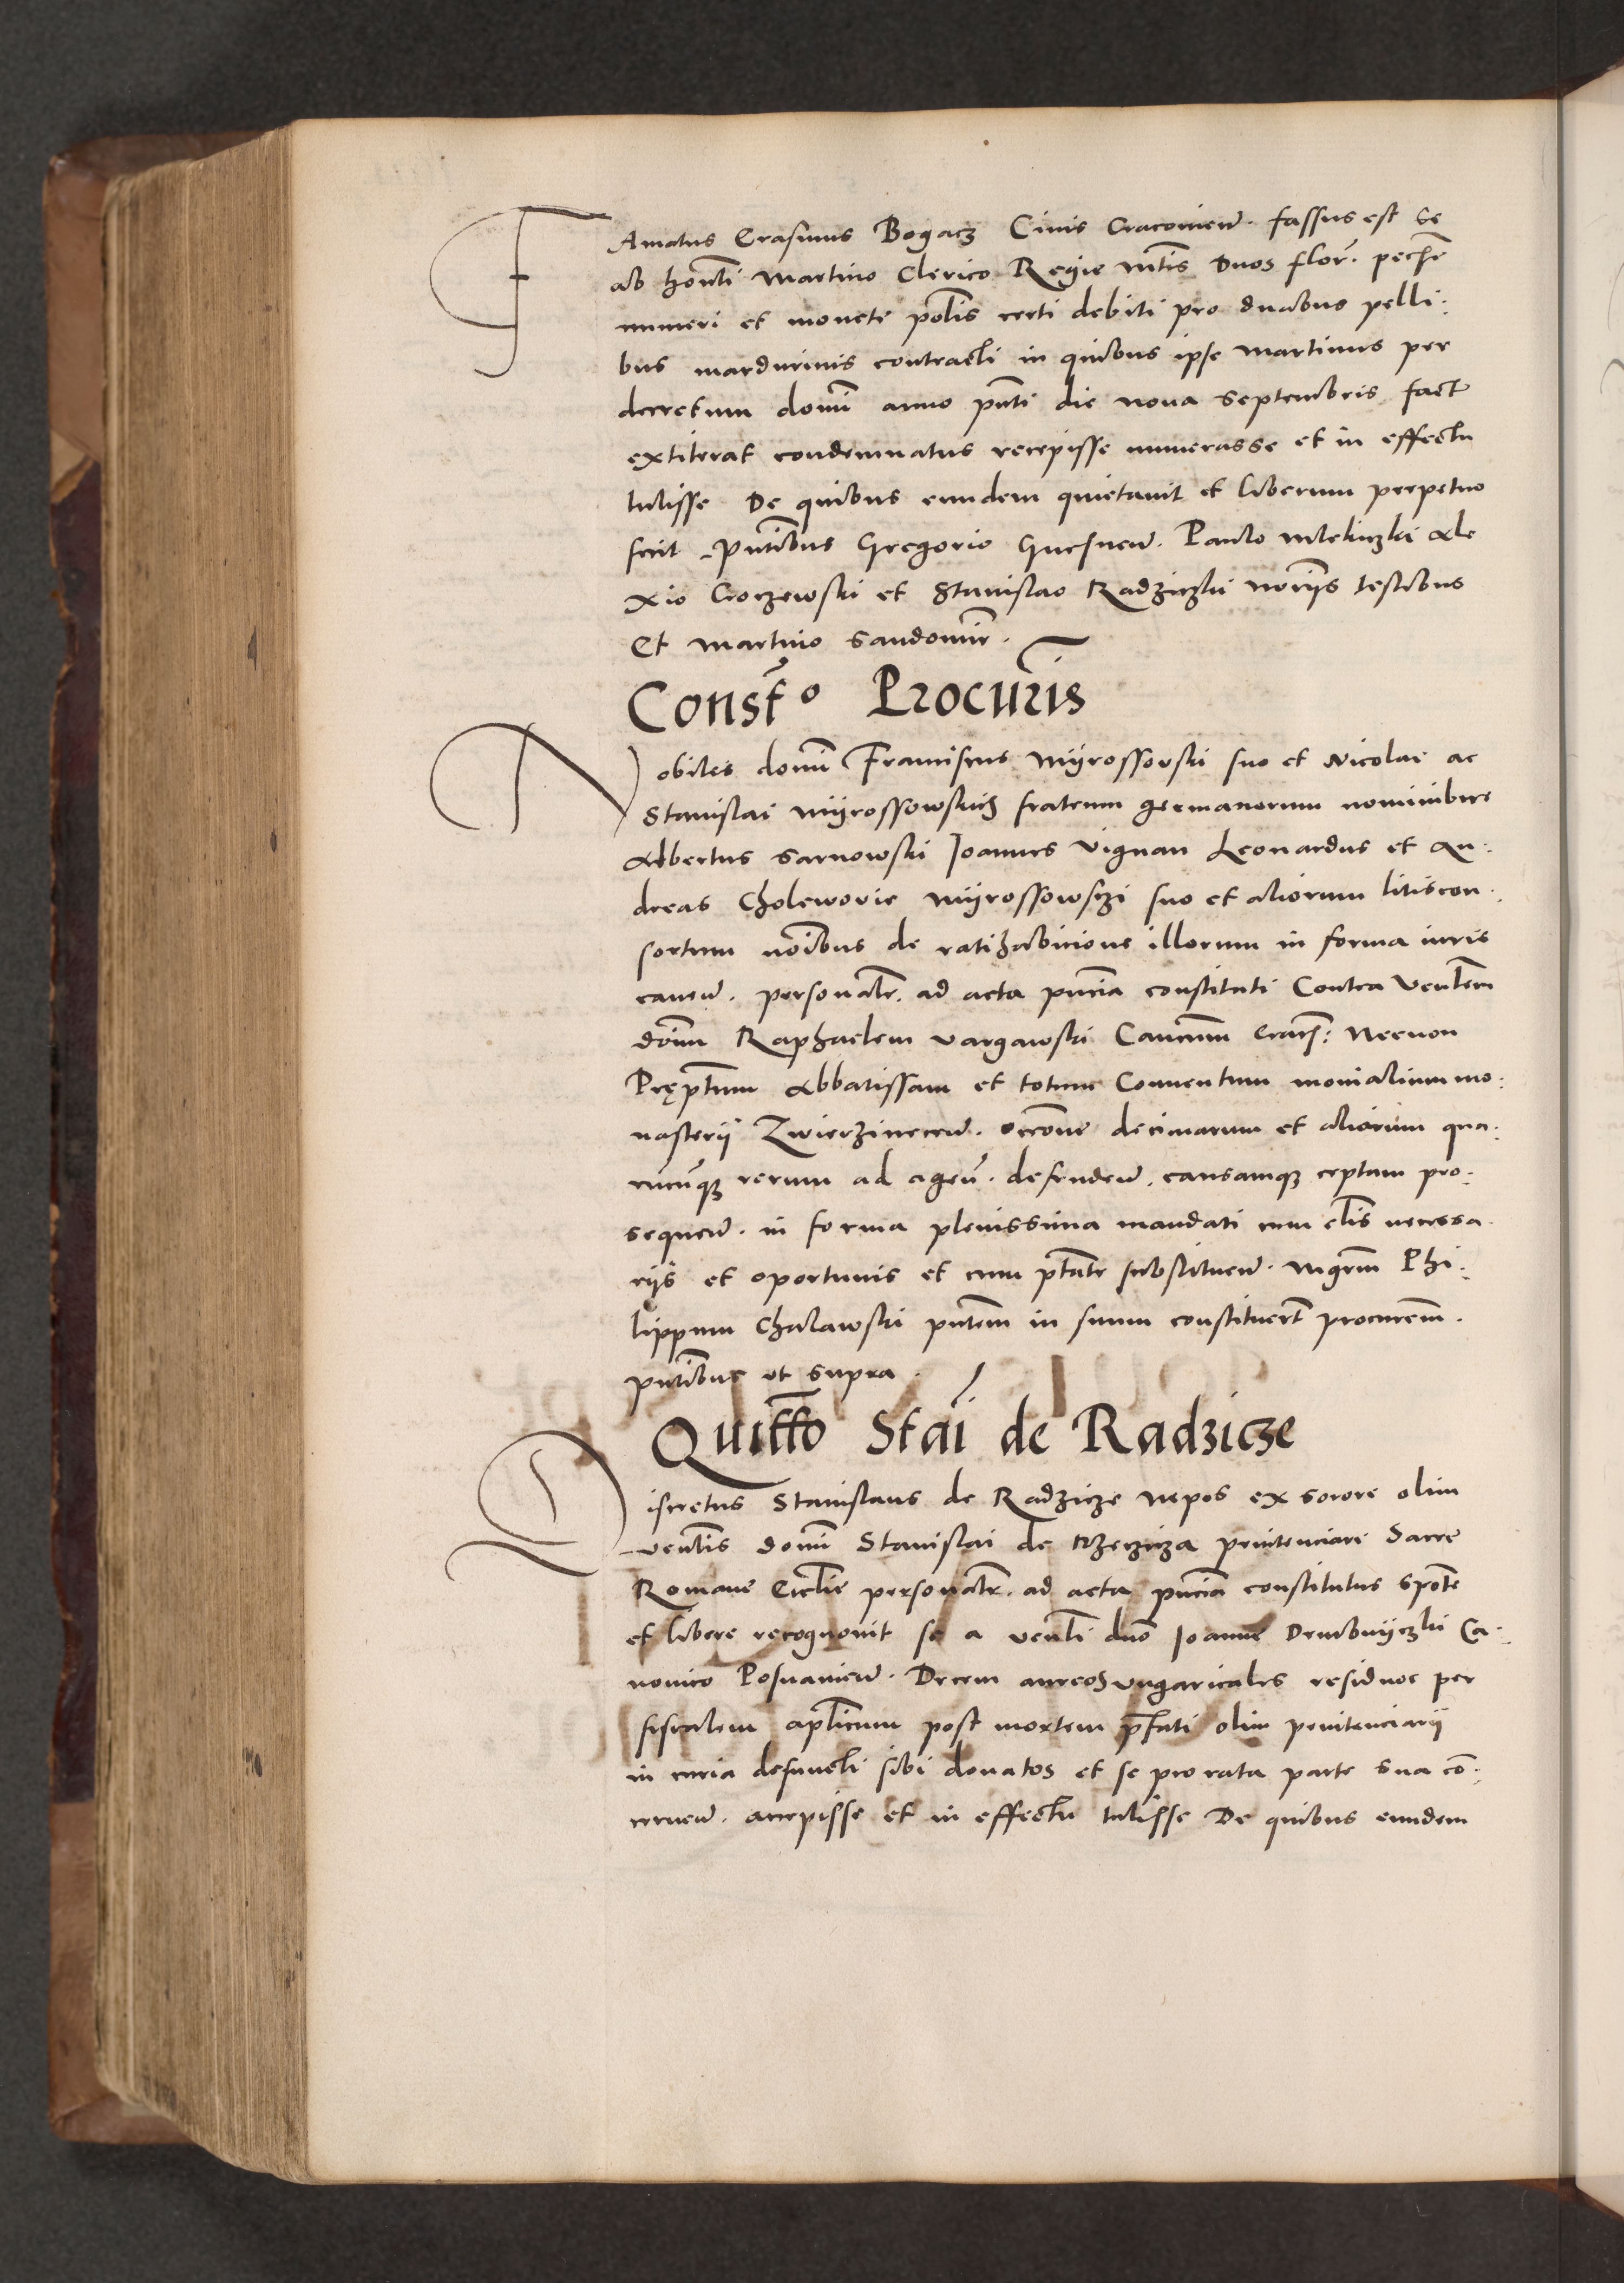 FAmatus Erasmus Bogacz Civis Cracovien̄. fassus est se
ab hon̄ti Martino Clerico Regie M̄tis Duos flor̄. pec̄e
numeri et monete pol̄is certi debiti pro duabus pelli:
bus mardurinis contracti in quibus ipse Martinus per
decretum domi͞ anno pn̄ti die nona Septembris
extiterat condemnatus recepisse numerasse et in effectu
tulisse De quibus eundem quietavit et liberum perpetuo
fecit pn̄tibus Gregorio Gnesnen̄. Paulo Mleliczki Ale
xio Croczewski et Stanislao Radziczki nōriis testibus
Et Martino Sandomir̄.
Const̄o Procur̄is
Nobiles domi͞ Franciscus Myrossovski suo et Nicolai ac
Stanislai Myrossowskich fratrum germanorum nominibus
Albertus Sarnowski Joannes Vignan Leonardus et An:
dreas Cholewovie Myrossowsczi suo et aliorum litiscon
sortum noi͞bus de ratihabicione illorum in forma iuris
caven̄. personalr̄. ad acta pn̄cia constituti Contra Ven̄lem
dōm̄ Raphaelem Vargawski Canc̄um Crac̄: Necnon
Pręp̄tum Abbatissam et totum Conventum monialium mo:
nasterii Zwierzinecen̄. occōne decimarum et aliorum qua:
rūcūqz rerum ad agen̄. defenden̄. causamqz ceptam pro:
sequen̄. in forma plenissima mandati cum cl̄is necessa
riis et oportunis et cum p̄tate substituen̄. Mgr̄m Phi:
lippum Chalawski pn̄tem in suum constituert̄ procurem̄.
pn̄tibus ut supra.
Quitt̄o Stai͞ de Radzicze
Discretus Stanislaus de Radzicze nepos ex sorore olim
ven̄lis domi͞ Stanislai de Rzeczicza penitenciarii Sacre
Romane Eccl̄ie personalr̄. ad acta pn̄cia constitutus sponte
et libere recognovit se a ven̄li dn̄o Joanne Drembniczki Ca:
nonico Posnanien̄. Decem aureos ungaricales residuos per
fiscalem ap̄licum post mortem p̄fati olim penitenciarii
in curia defuncti sibi donatos et se pro rata parte sua cō:
cernen̄. accepisse et in effectu tulisse De quibus eundem